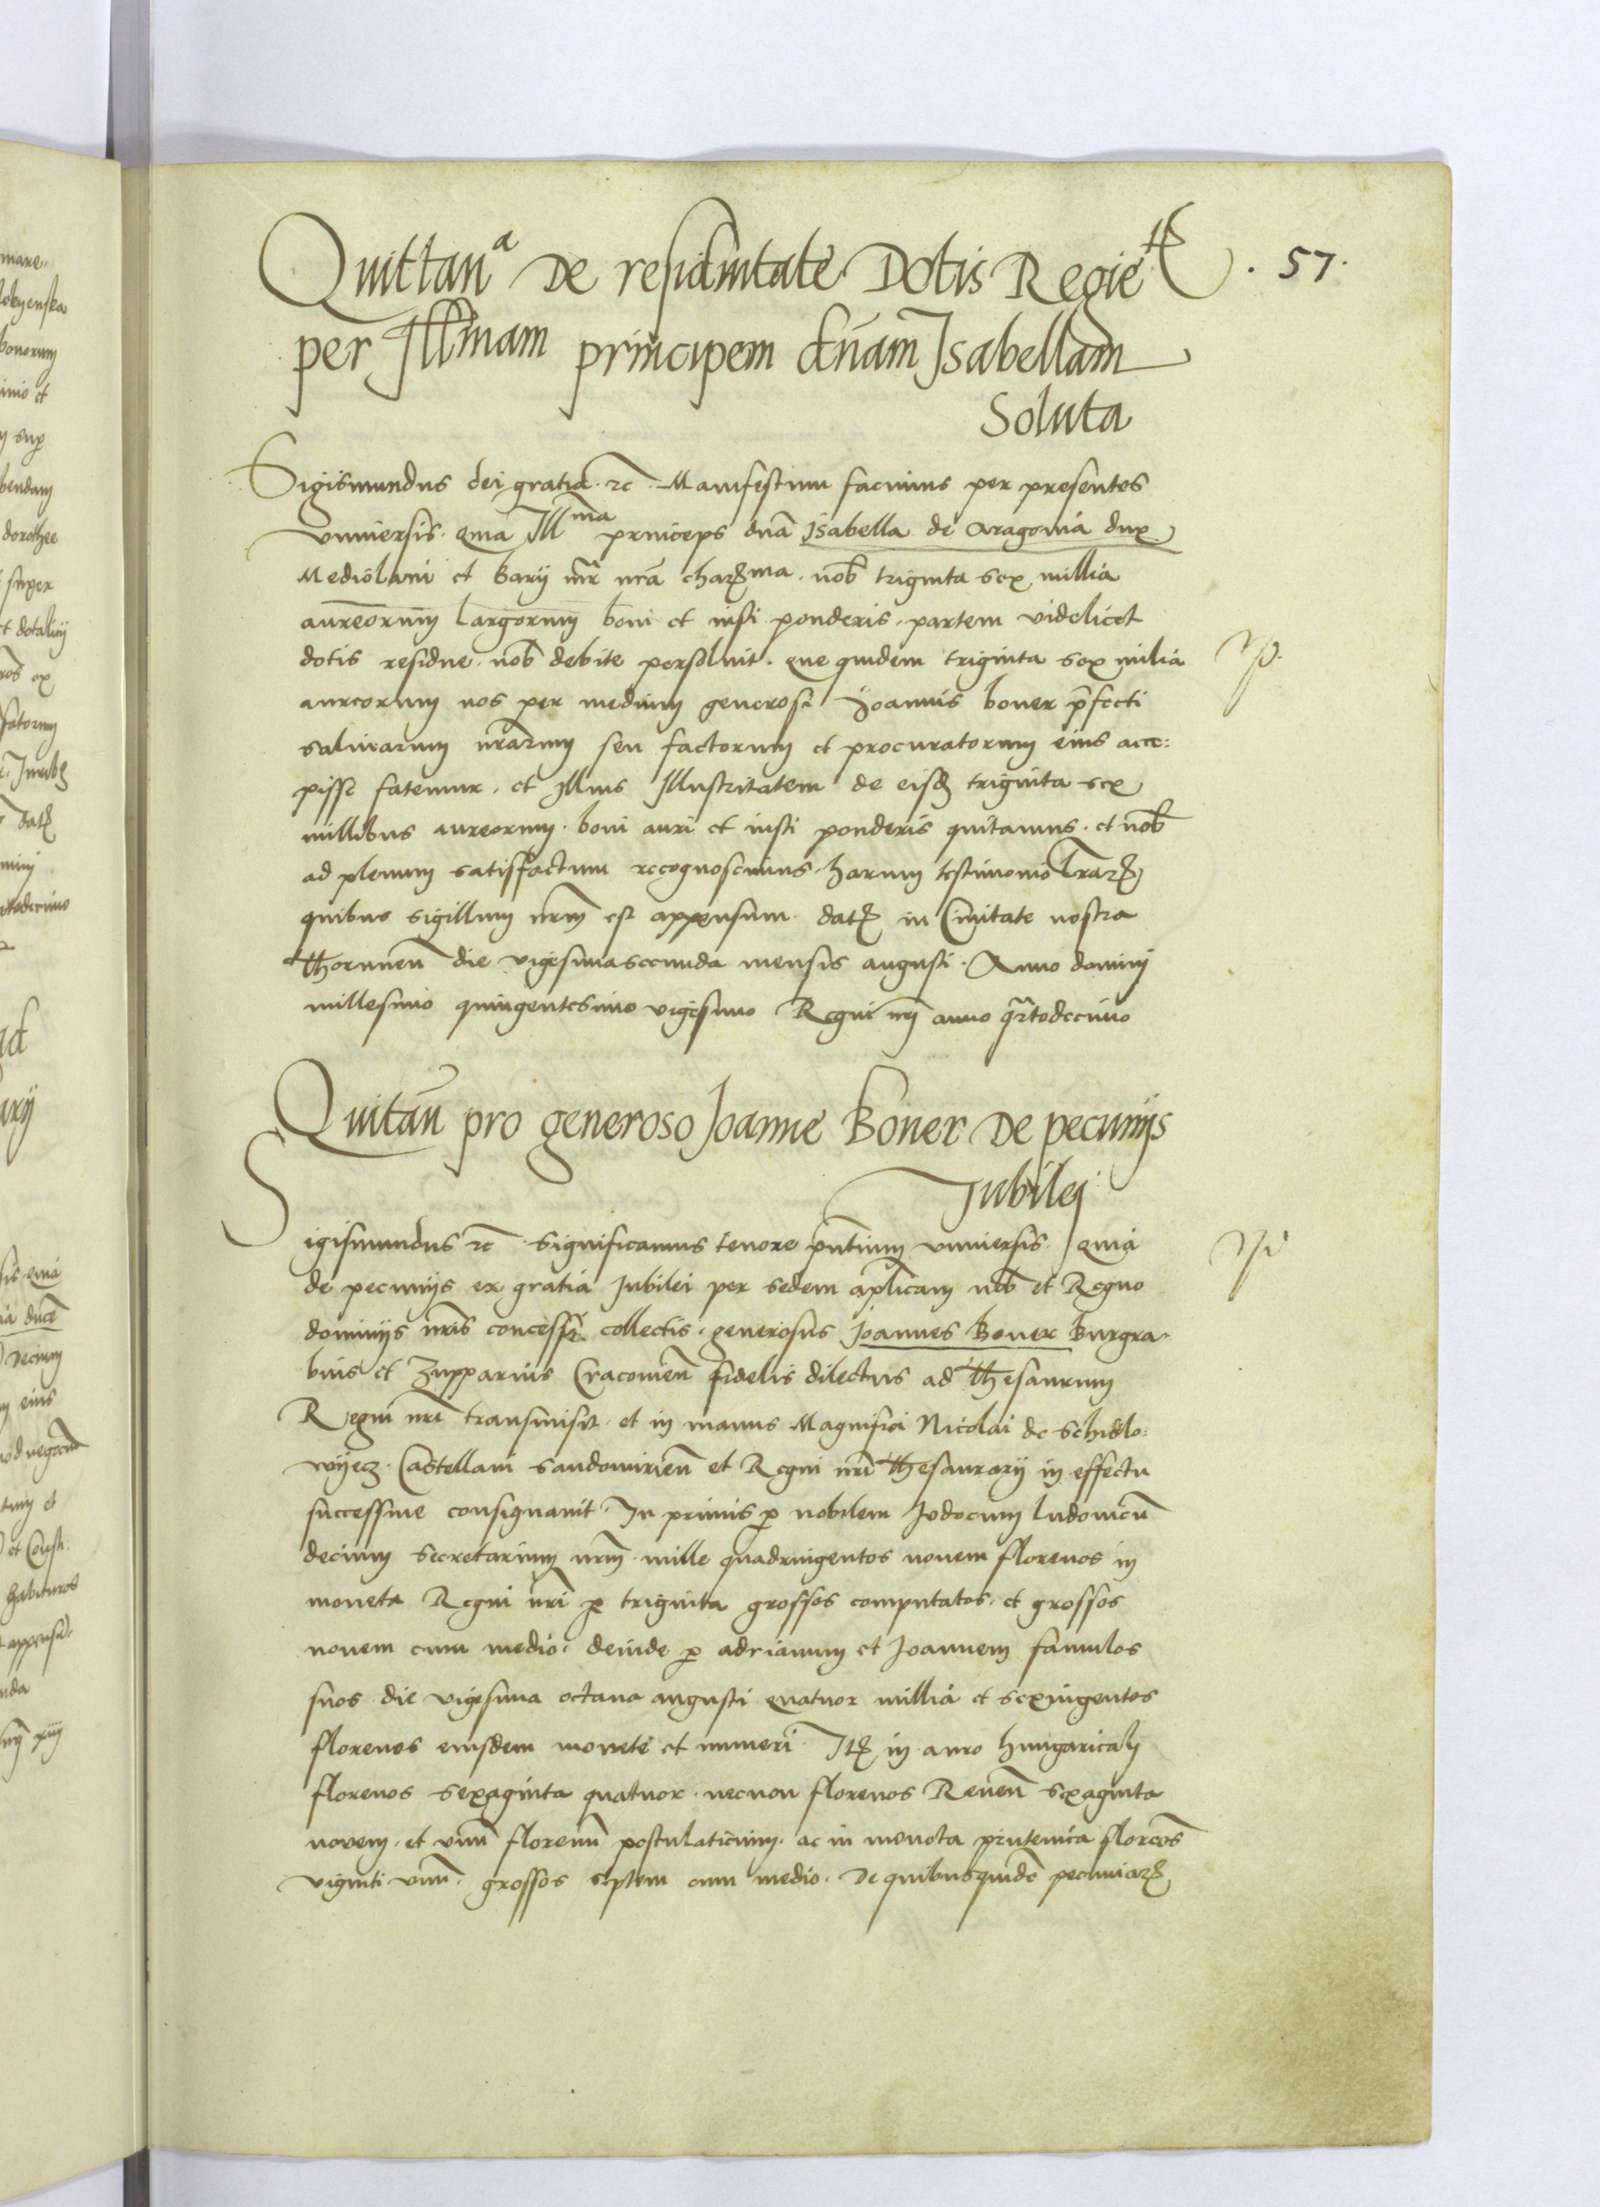 Quittanᵃ de residuitate Dotis Regie . 57.
per Illmam principem dnam Isabellam
Soluta
Sigismundus dei gratia ⁊c Manifestum facimus per presentes
Vniuersis. quia Illma princeps dna Isabella de Aragonia dux
Mediolani et Bary mr nra charma. nob triginta sex millia
aureorum largorum boni et iusti ponderis. partem videlicet
dotis residue. nob debite persoluit. que quidem triginta sex milia
aureorum nos per medium generosi Ioannis boner prefecti
salinarum nrarum seu factorum et procuratorum eius acce:
pisse fatemur. et Illius Illustritatem de eisd triginta sex
millibus aureorum. boni auri et iusti ponderis quitamus. et nob
ad plenum satisfactum recognoscimus. harum testimonio lrarum
quibus sigillum nrm est appensum. dat in Ciuitate nostra
Thorunen die vigesimasecunda mensis augusti. Anno domini
millesimo quingentesimo vigesimo Regni nri anno qrtodecimo
Quitan pro generoso Joanne Boner de pecunijs
Jubilej
Sigismundus ⁊c significamus tenore pntium vniuersis. quia
de pecunijs ex gratia Iubilei per sedem aplicam nob et Regno
dominijs nris concessi collectis. generosus Joannes Boner Burgra-
bius et Zupparius Cracouien fidelis dilectus ad Thesaurum
Regni nri transmisit. et in manus Magnifici Nicolai de Schidlo:
wyecz. Castellani Sandomirien et Regni nri Thesaurarij in effectu
successiue consignauit. In primis p nobilem Jodocum ludouicu
decium secretarium nrm. mille quadringentos nouem florenos in
moneta Regni nri p triginta grossos computatos. et grossos
nouem cum medio. deinde p adrianum et Joannem famulos
suos die vigesima octaua augusti quatuor millia et sexingentos
florenos eiusdem monete et numeri. It in auro hungaricali
florenos sexaginta quatuor. necnon florenos Renen sexaginta
nouem. et vnu florenu postulaticium. ac in moneta prutenica florenos
viginti vnu. grossos septem cum medio. De quibusquide pecuniar